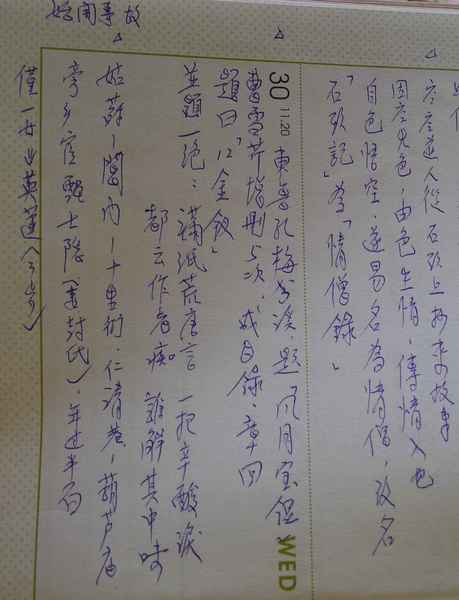 空空道人從石頭上抄來故事
因空見色,由色生情,傳情入色
自色悟空,遂易名為情僧,改名
「石頭記」為「情僧錄」
30 11.20 WED
東魯孔梅溪題風月宝鑑
曹雪芹增刪5次,成目錄,章回
題曰「12金釵」
並題一絕:滿紙荒唐言 一把辛酸淚
都云作者痴 誰解其中味
姑蘇-閶門-十里街.仁清巷,葫芦庙
旁乡宦甄士隐(妻封氏),年过半百
僅一女英蓮(3歲)
始開事故